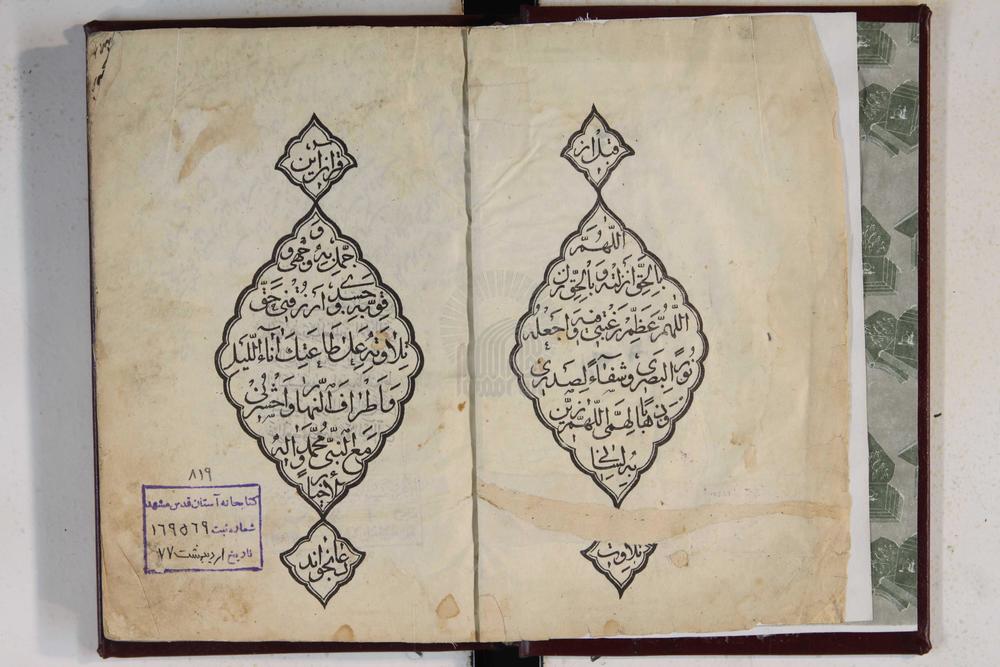 قبل از
اللهم
بالحق انزلته و بالحق نزل
اللهم عظم رغبتی فیه واجعله
نورا لبصری وشفاء لصدری
وذهابا لهمی اللهم زین
به لسانی
تلاوت
قرآن این
و
جمل به وجهی و
قو به جسدی وارزقنی حق
تلاوته علی طاعتک آناء اللیل
واطراف النهار واحشرنی
مع النبی محمد وآله
الاخیار
دعا بخواند
۸۱۹
کتابخانه آستان قدس مشهد
شماره ثبت ۱۶۹۵۶۹
تاریخ اردیبهشت ۷۷